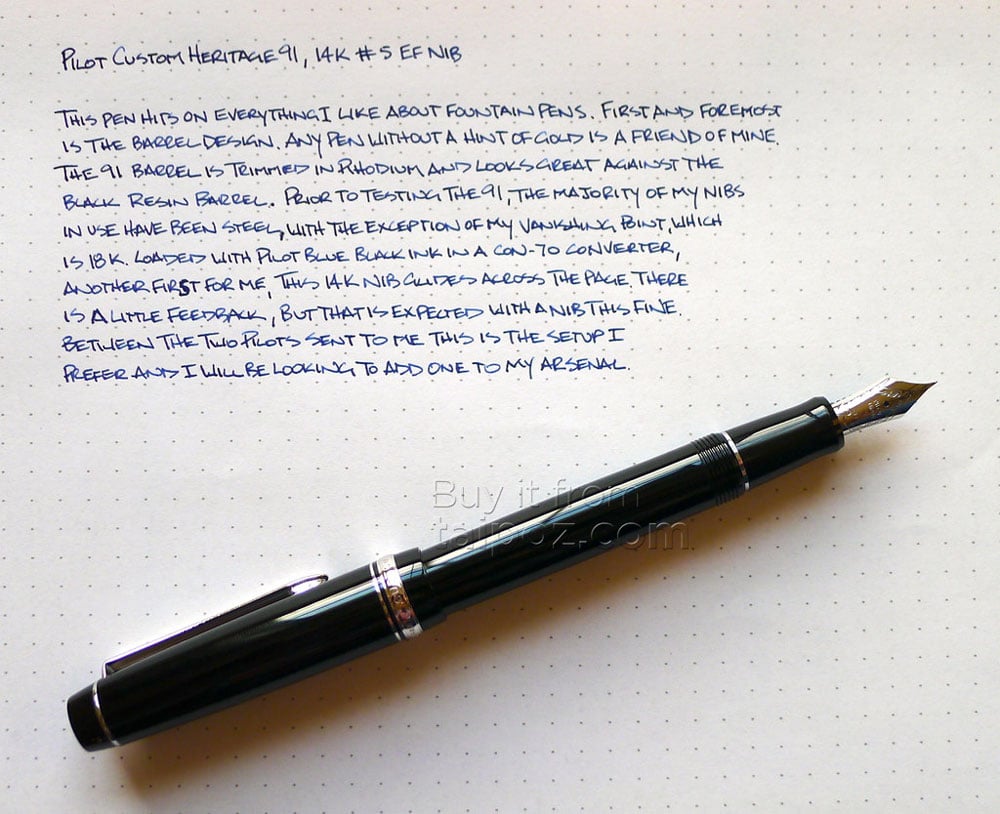 PILOT CUSTOM HERITAGE 91, 14K #5 EF NIB
THIS PEN HITS ON EVERYTHING I LIKE ABOUT FOUNTAIN PENS. FIRST AND FOREMOST
IS THE BARREL DESIGN. ANY PEN WITHOUT A HINT OF GOLD IS A FRIEND OF MINE.
THE 91 BARREL IS TRIMMED IN RHODIUM AND LOOKS GREAT AGAINST THE
BLACK RESIN BARREL. PRIOR TO TESTING THE 91, THE MAJORITY OF MY NIBS
IN USE HAVE BEEN STEEL, WITH THE EXCEPTION OF MY VANISHING POINT, WHICH
IS 18K. LOADED WITH PILOT BLUE BLACK INK IN A CON-70 CONVERTER,
ANOTHER FIRST FOR ME, THIS 14K NIB GLIDES ACROSS THE PAGE. THERE
IS A LITTLE FEEDBACK, BUT THAT IS EXPECTED WITH A NIB THIS FINE.
BETWEEN THE TWO PILOTS SENT TO ME THIS IS THE SETUP I
PREFER AND I WILL BE LOOKING TO ADD ONE TO MY ARSENAL.
Buy it from
taipoz.com